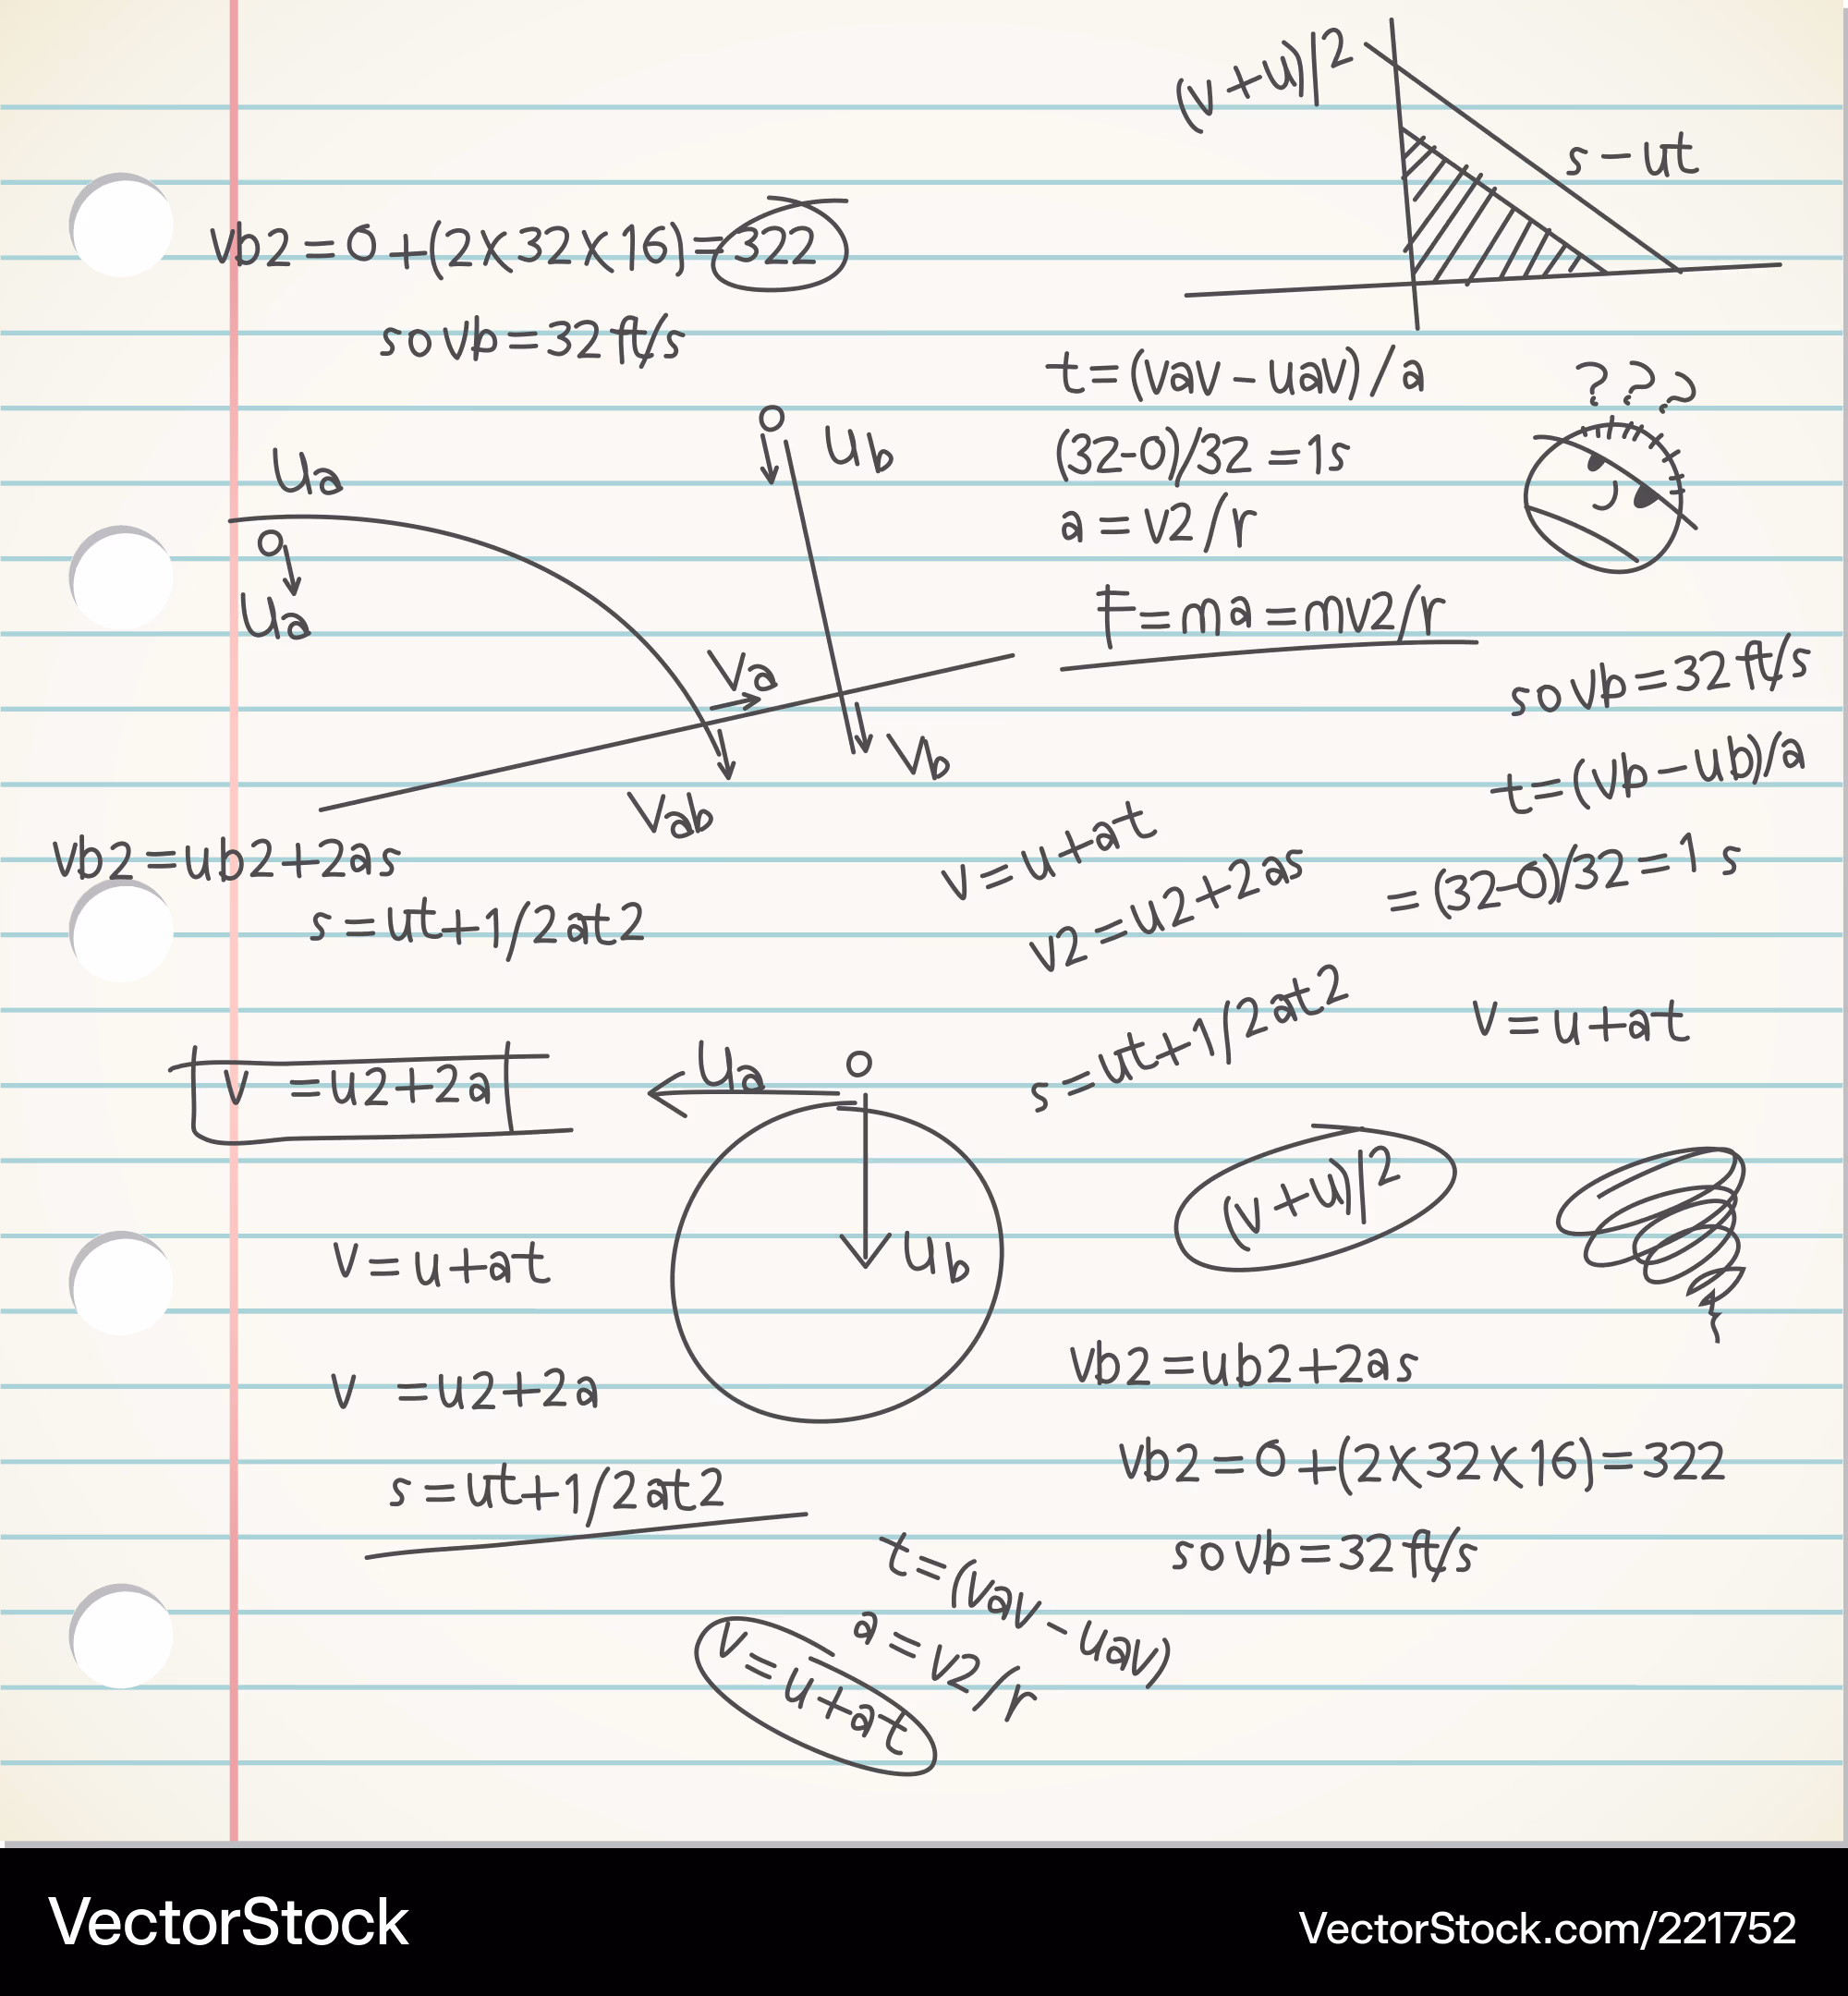 (v+u)|2
s-ut
vb2=0+(2x32x16)=322
so vb=32ft/s
t=(vav-uav)/a
???
(32-0)/32=1s
a=v2/r
F=ma=mv2/r
Ua
Ub
Ua
Va
Vb
Vab
so vb=32ft/s
t=(vb-ub)/a
=(32-0)/32=1 s
vb2=ub2+2as
s=ut+1/2at2
v=u+at
v2=u2+2as
s=ut+1/2at2
v=u+at
v =u2+2a
Ua
Ub
(v+u)|2
v=u+at
v =u2+2a
s=ut+1/2at2
vb2=ub2+2as
vb2=0+(2x32x16)=322
so vb=32ft/s
t=(vav-uav)
a=v2/r
v=u+at
VectorStock
VectorStock.com/221752